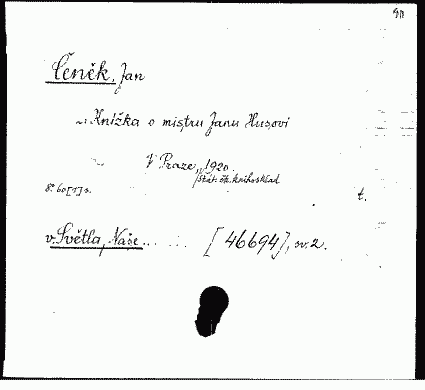 Čeněk, Jan
Knížka o mistru Janu Husovi
V Praze, 1920.
Stát. šk. knihosklad
8° 60[1] s.
t.
v. Světla, Naše... [46694], sv. 2.